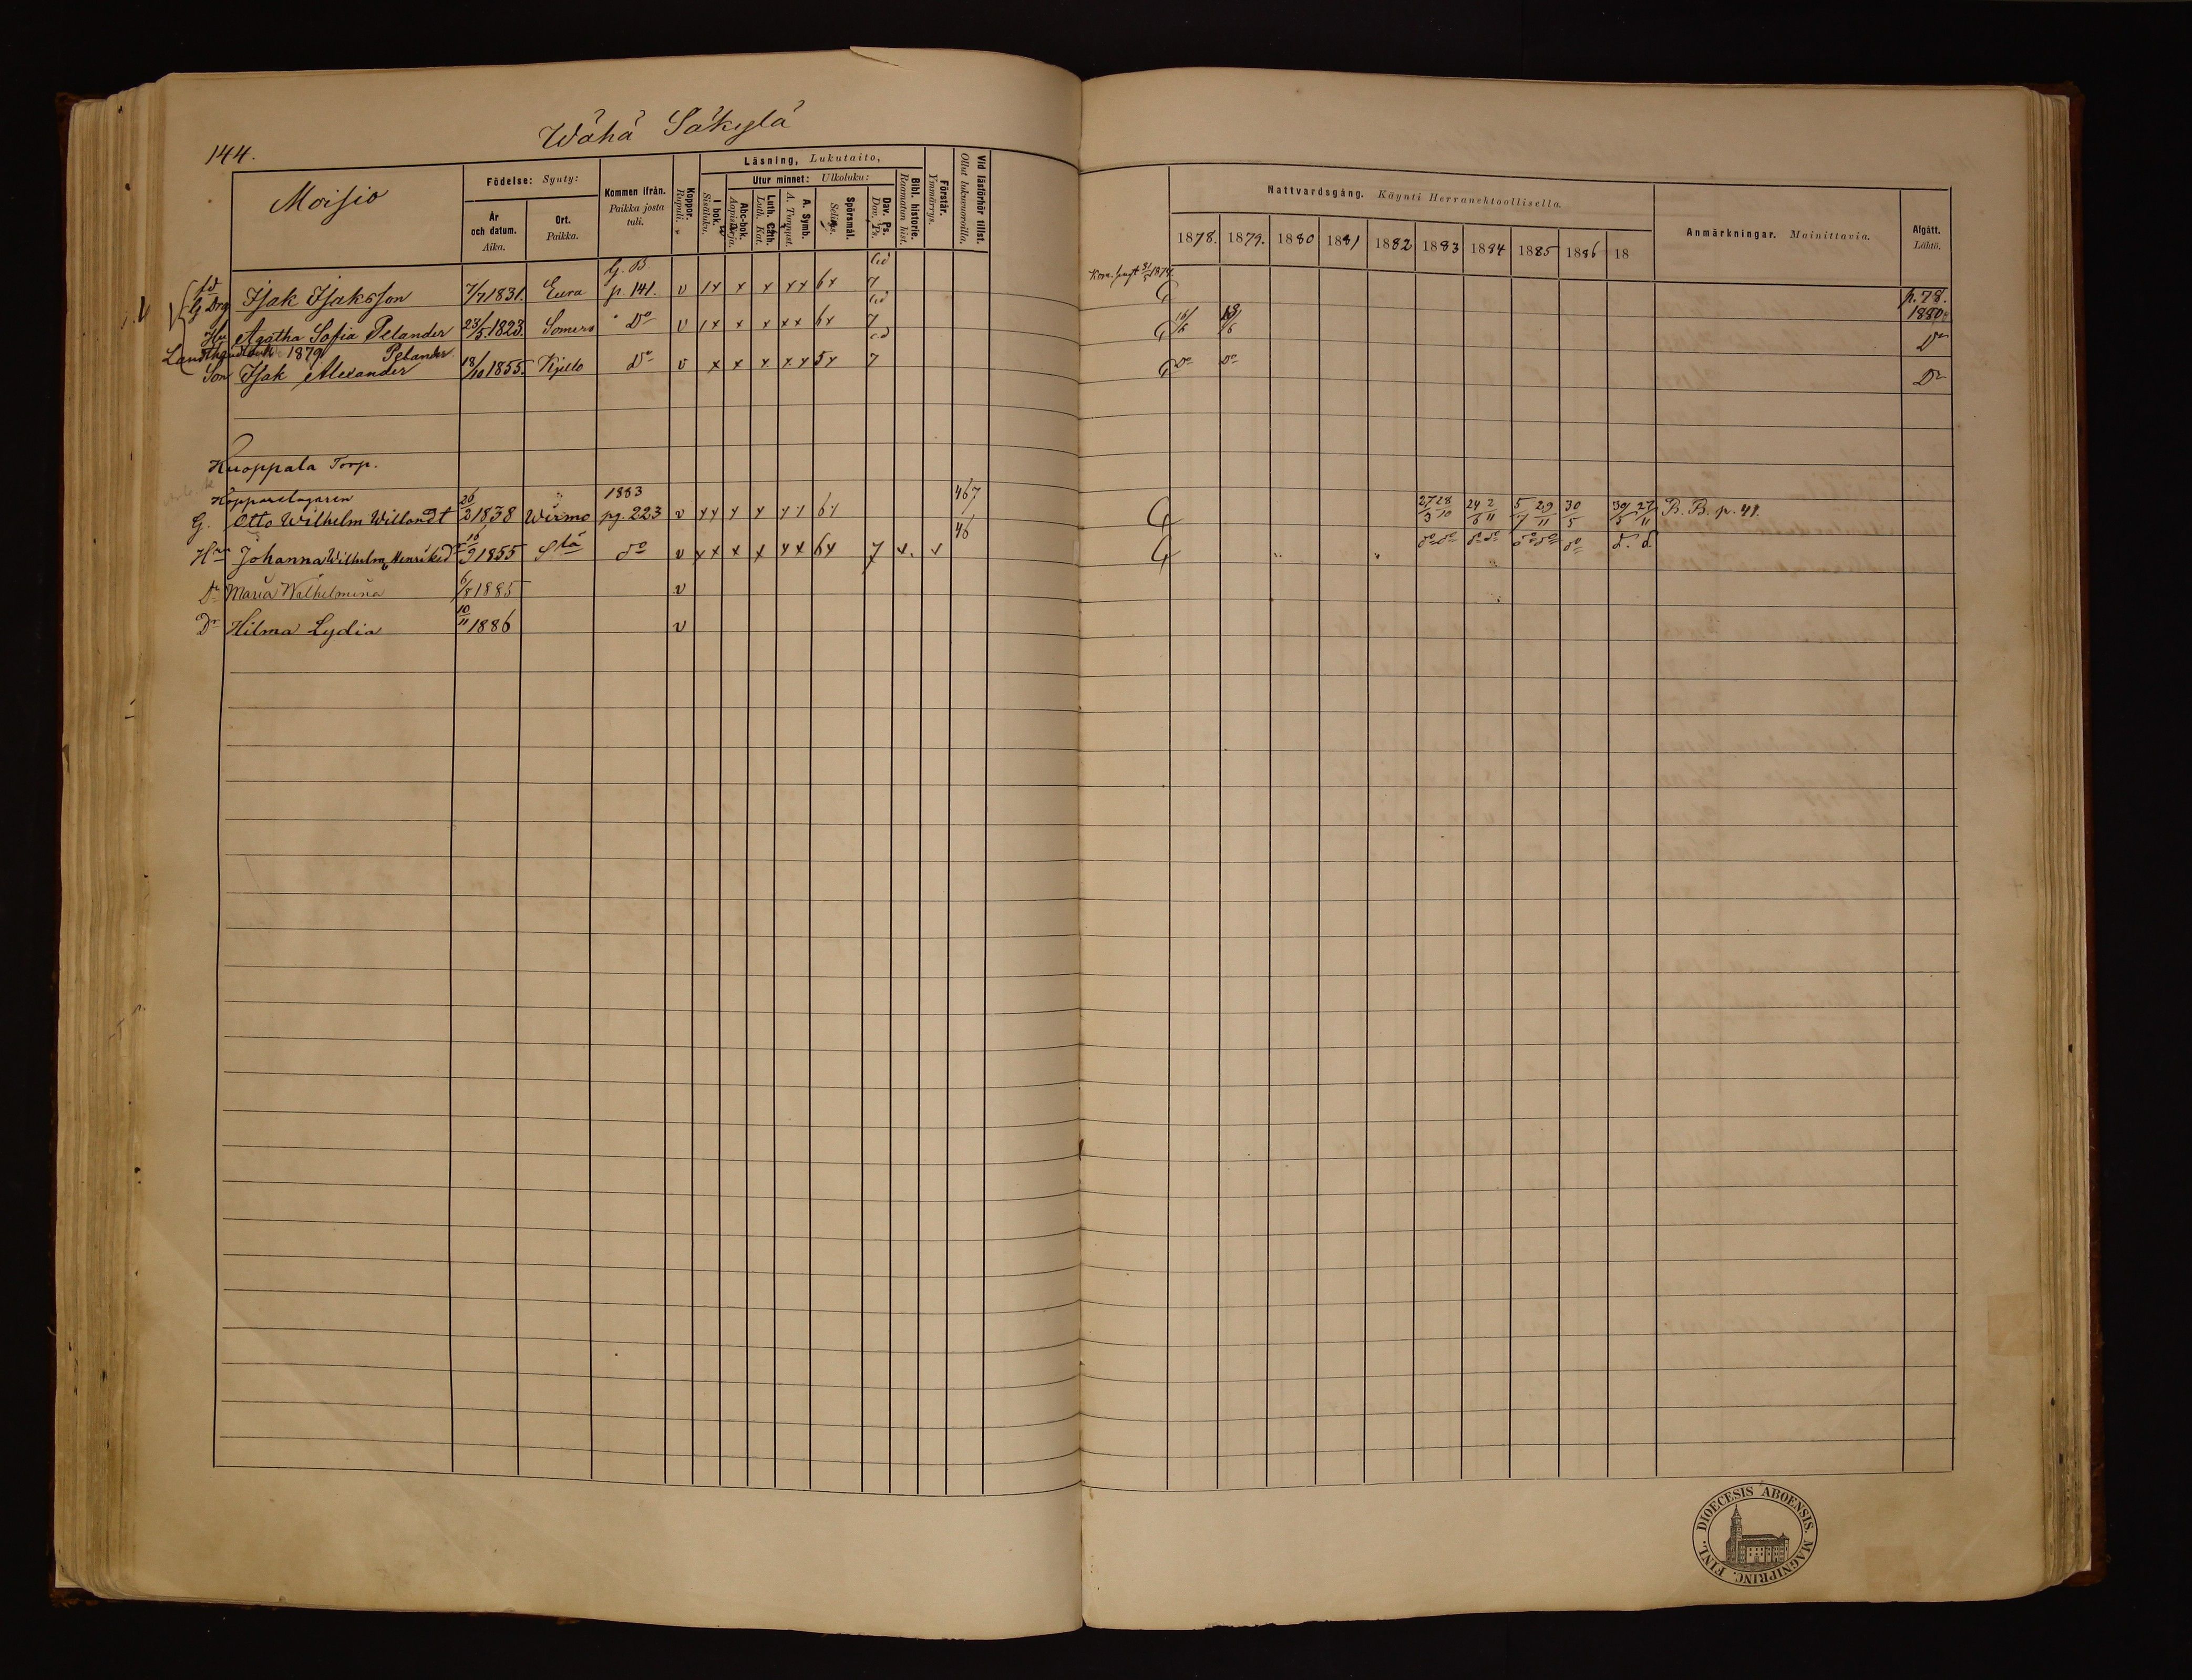 144.
Wähä Säkylä
Moisio
Födelse: Synty:
År och datum. Aika.
Ort. Paikka.
Kommen ifrån. Paikka josta tuli.
Koppor. Rupuli.
Läsning, Lukutaito,
I bok. Sisäluku.
Utur minnet: Ulkoluku:
Abc-bok. Aapiskirja.
Luth. Cath. Luth. Kat.
A. Symb. A. Tunnust.
Spörsmål. Selitys.
Dav. Ps. Dav. Ps.
Bibl. historie. Raamatun hist.
Förstår. Ymmärrys.
Vid läsförhör tillst. Ollut lukuvuoroilla.
Nattvardsgång. Käynti Herranehtoollisella.
1878. 1879. 1880 1881 1882 1883 1884 1885 1886 18
Anmärkningar. Mainittavia.
Afgått. Lähtö.
G. B.
Isak Isaksson 7/7 1831. Eura p. 141. v 1x x x xx 6x 7 p. 78. 1880
Hu Agatha Sofia Pelander 23/5 1823. Somero Do v 1x x x xx 6x 7 16/6 Do
1879 Pelander
Son Isak Alexander 18/10 1855. Kjulo Do v x x x xx 5x 7 Do Do Do
Kuoppala Torp.
Kopparslagaren 1883 467
G. Otto Wilhelm Willandt 26/2 1838 Wirmo pg. 223 v xx x x xx 6x 27/3 28/10 24/6 2/11 5/7 29/11 30/5 39/5 27/11 B. B. p. 41.
46
Hu Johanna Wilhelma Henriksd 16/9 1855 do v xx x x xx 6x 7 x. x do do do do do do do d. d.
Dr Maria Wilhelmina 6/8 1885 v
Dr Hilma Lydia 10/11 1886 v
DIOECESIS ABOENSIS. MAGNIPRINC. FINL.